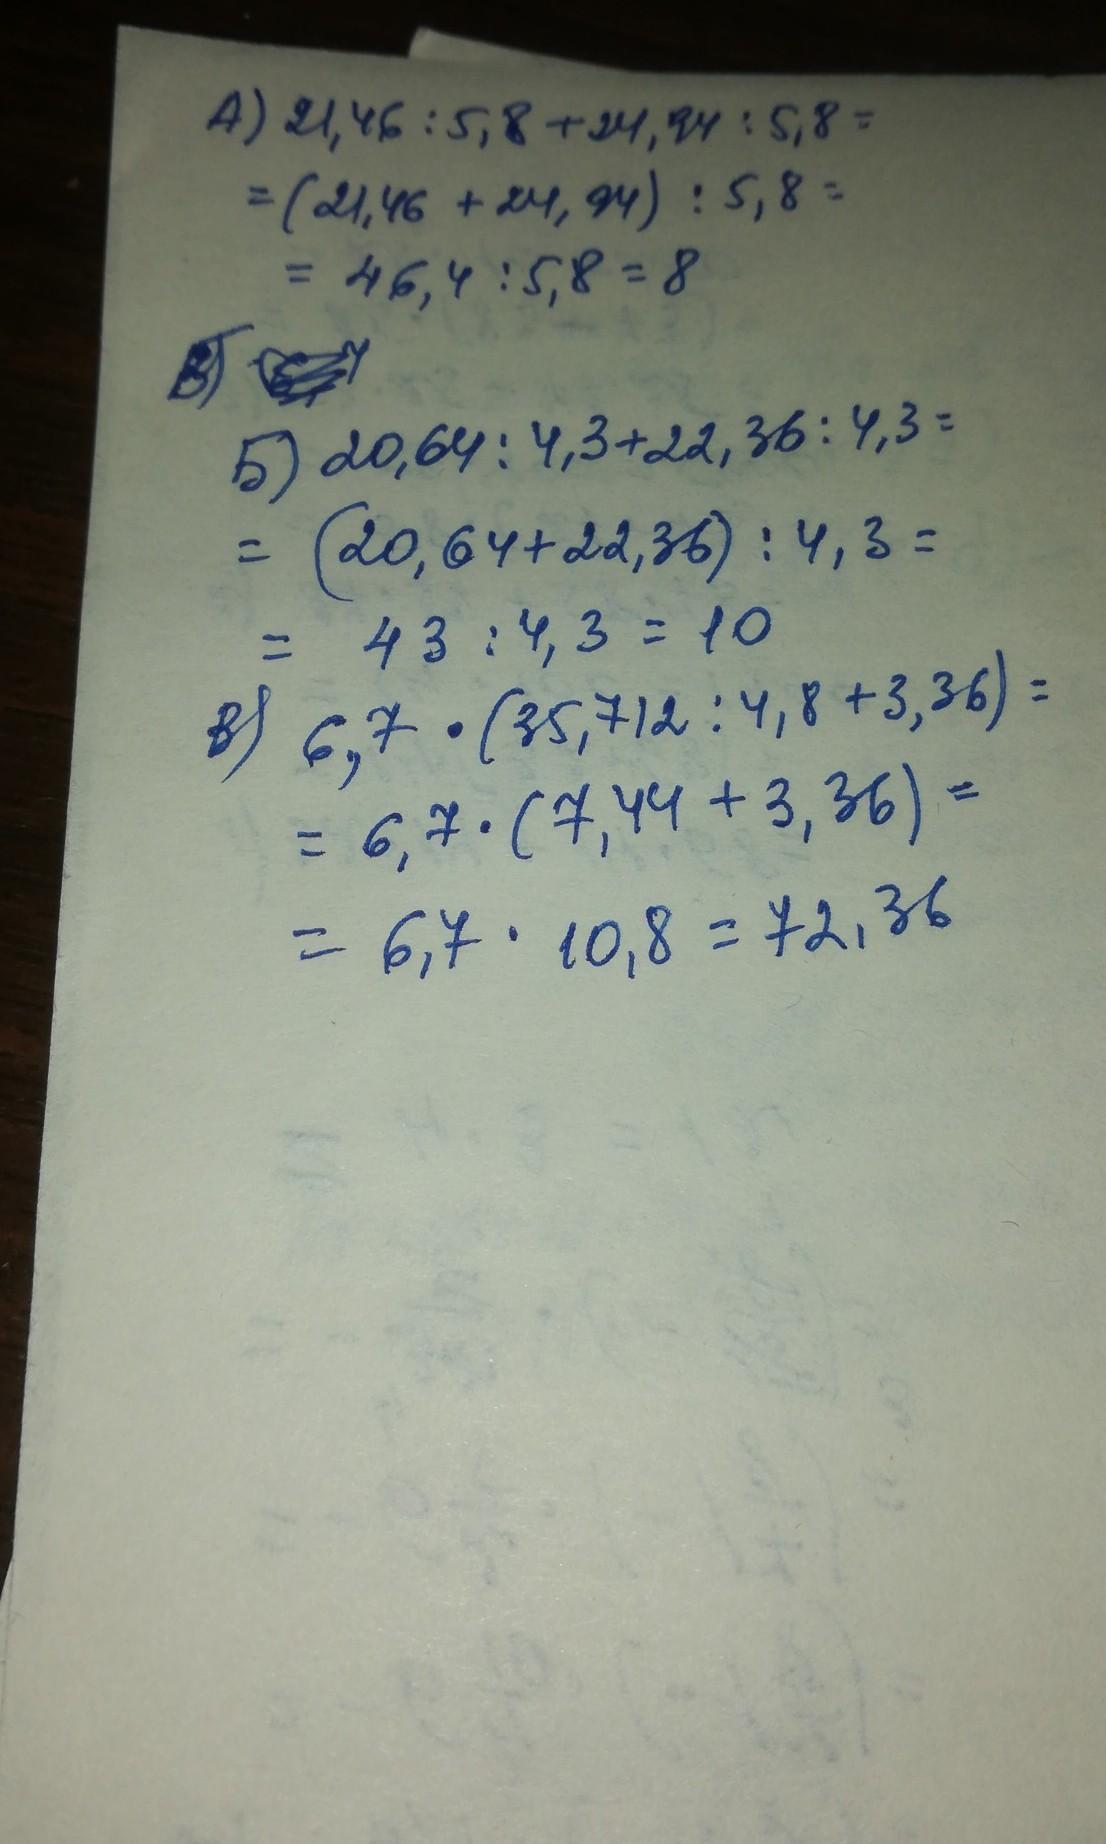 А) 21,46 : 5,8 + 24,94 : 5,8 =
= (21,46 + 24,94) : 5,8 =
= 46,4 : 5,8 = 8
Б) 20,64 : 4,3 + 22,36 : 4,3 =
= (20,64 + 22,36) : 4,3 =
= 43 : 4,3 = 10
В) 6,7 · (35,712 : 4,8 + 3,36) =
= 6,7 · (7,44 + 3,36) =
= 6,7 · 10,8 = 72,36